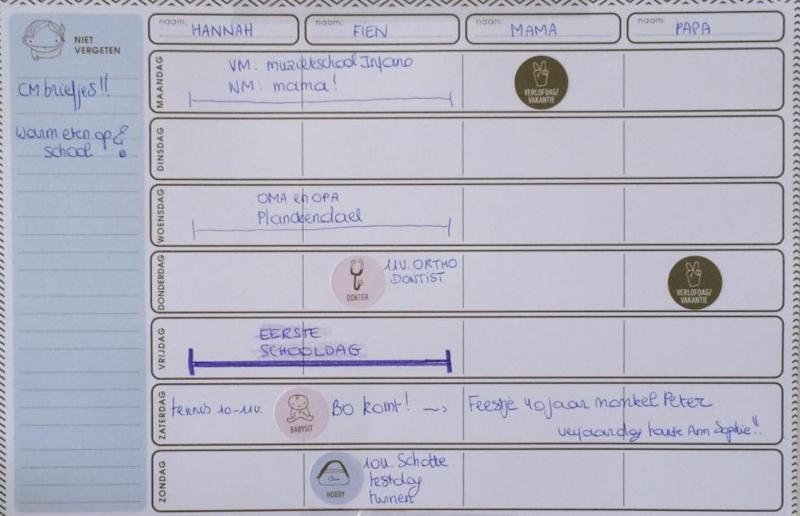 NIET
VERGETEN
CM briefjes!!
Warm eten op
school
naam: HANNAH
naam: FIEN
naam: MAMA
naam: PAPA
MAANDAG
VM: muziekschool Infano
NM: mama!
VERLOFDAG/
VAKANTIE
DINSDAG
WOENSDAG
OMA en OPA
Planckendael
DONDERDAG
DOKTER
11U. ORTHO
DONTIST
VERLOFDAG/
VAKANTIE
VRIJDAG
EERSTE
SCHOOLDAG
ZATERDAG
tennis 10-11U.
BABYSIT
Bo komt! →
Feestje 40 jaar nonkel Peter
verjaardag Ann Sophie!!
ZONDAG
HOBBY
10U. Schotte
testdag
turnen